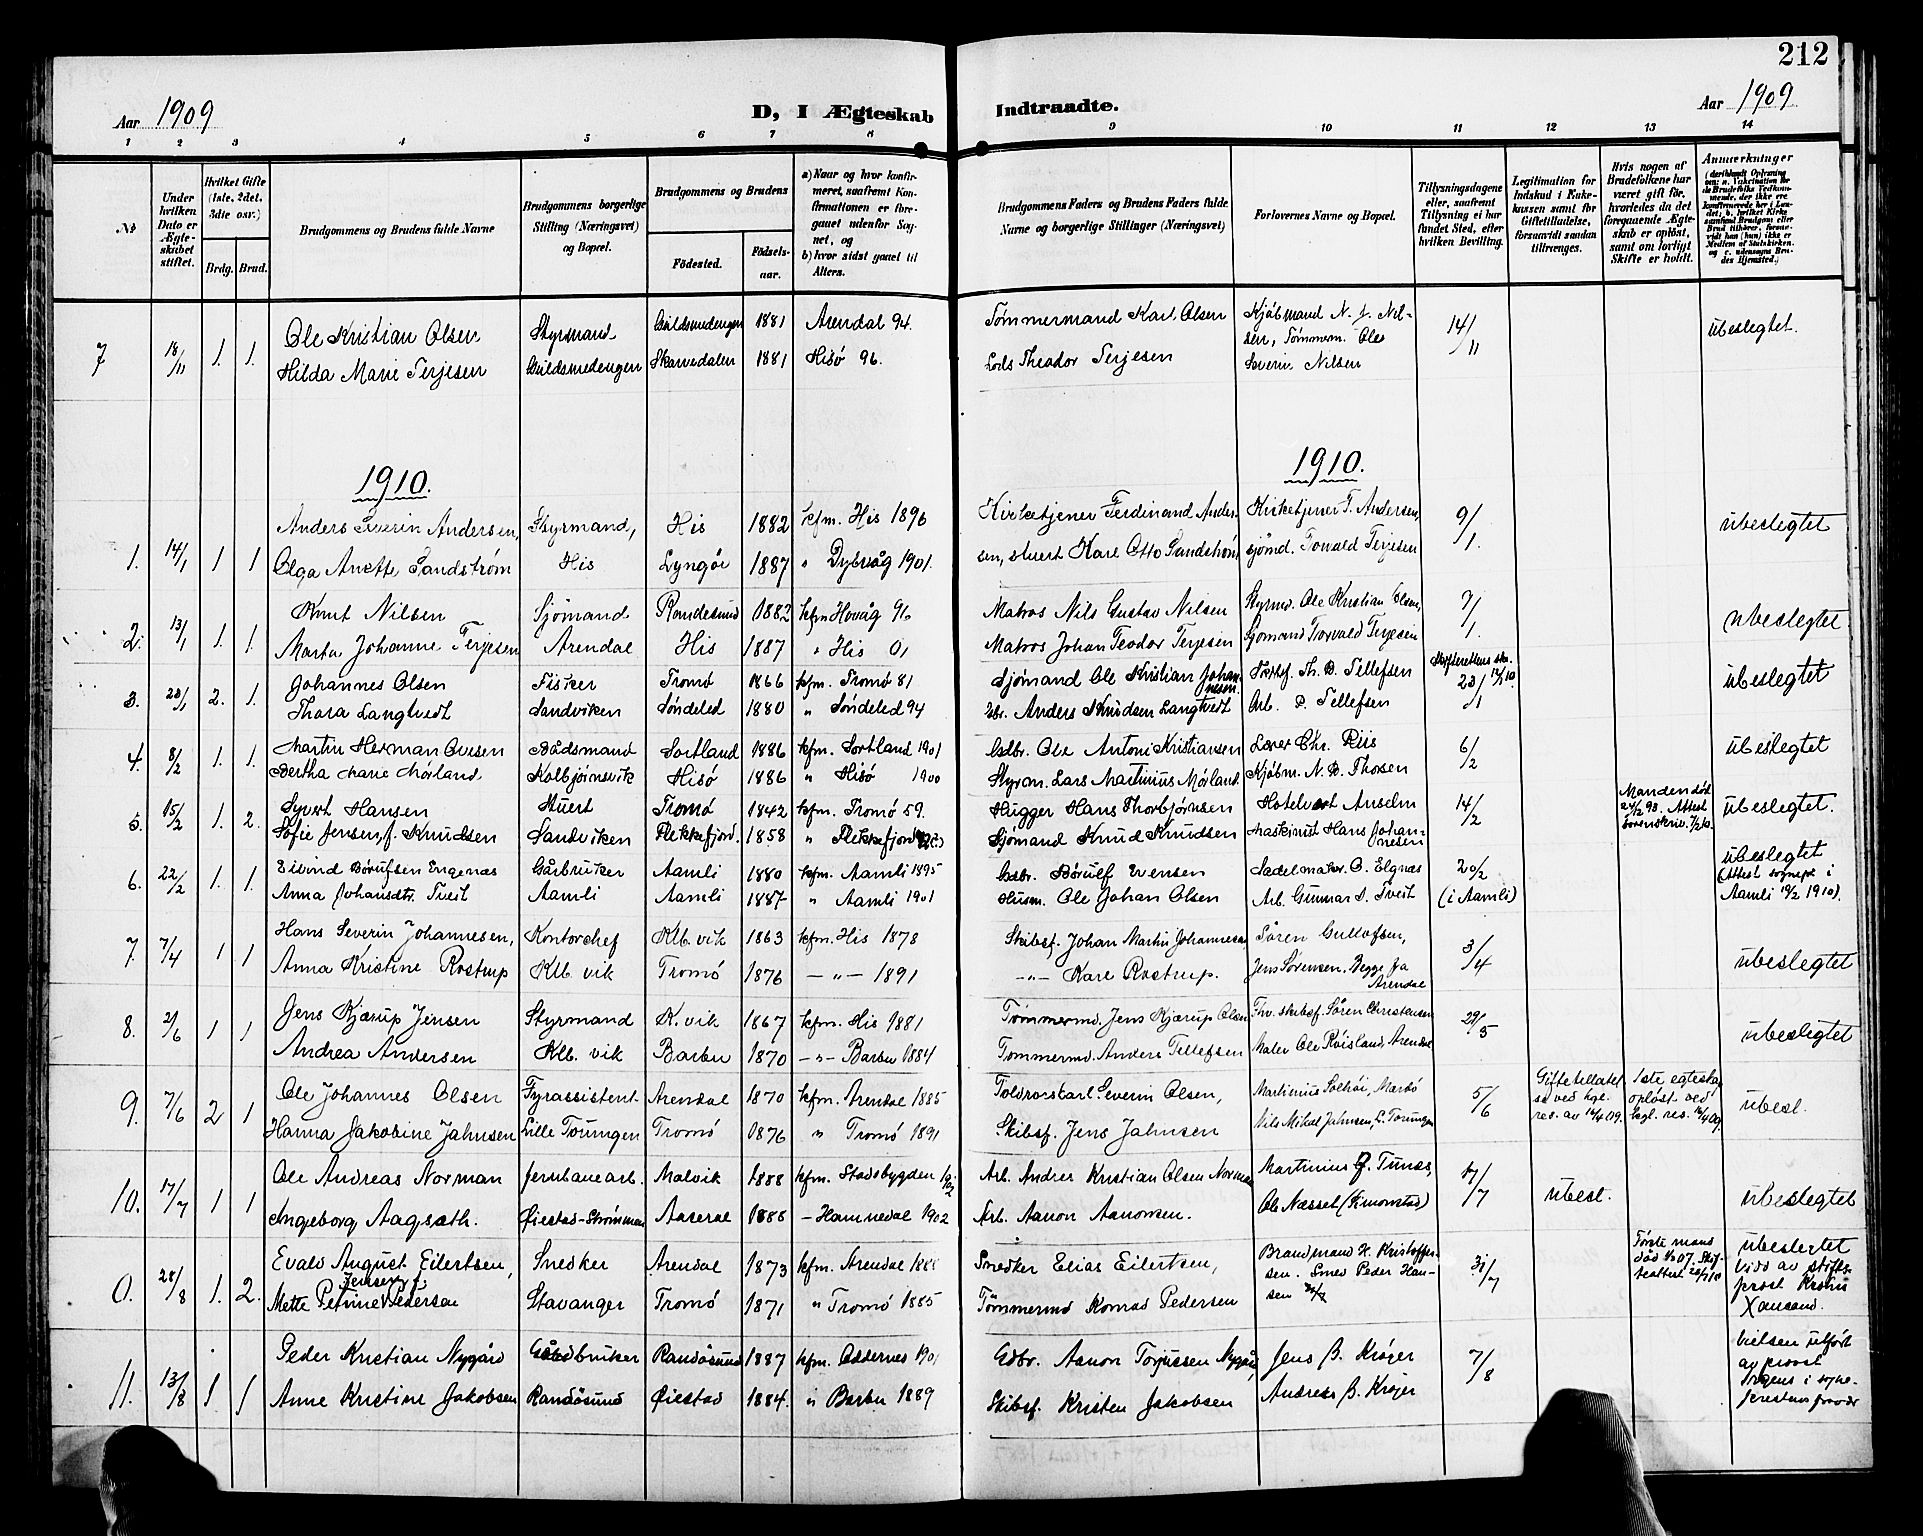 212
Aar 1909
D, I Ægteskab Indtraadte.
Aar 1909
1 2 3 4 5 6 7 8 9 10 11 12 13 14
No
Under hvilken Dato er Ægteskabet stiftet.
Hvilket Gifte (1ste, 2det, 3die osv.)
Brdg. Brud.
Brudgommens og Brudens fulde Navne
Brudgommens borgerlige Stilling (Næringsvei) og Bopæl.
Brudgommens og Brudens
Födested.
Födselsaar.
a) Naar og hvor konfirmeret, saafremt Konfirmationen er foregaaet udenfor Sognet, og
b) hvor sidst gaaet til Alters.
Brudgommens Faders og Brudens Faders fulde Navne og borgerlige Stillinger (Næringsvei)
Forlovernes Navne og Bopæl.
Tillysningsdagene eller, saafremt Tillysning ei har fundet Sted, efter hvilken Bevilling.
Legitimation for Indskud i Enkekassen samt for Giftetilladelse, forsaavidt saadan tiltrænges.
Hvis nogen af Brudefolkene har været gift för, hvorledes da det foregaaende Ægteskab er oplöst, samt om lovligt Skifte er holdt.
Anmerkninger
7 18/11 1. 1. Ole Kristian Olsen Styrmand Guldsmedengen 1881 Arendal 94. Tømmermand Karl Olsen Kjøbmand N. J. Nilsen, Tømmerm. Ole Severin Nilsen 14/11 ubeslegtet.
Hilda Marie Terjesen Guldsmedengen Skarvedalen 1881 Hisø 96. Lods Theodor Terjesen
1910. 1910.
1. 14/1 1 1 Anders Severin Andersen, Styrmand, His 1882 kfm. His 1896 Kirketjener Ferdinand Andersen, Kirketjener F. Andersen, 9/1. ubeslegtet
Olga Anette Sandstrøm His Lyngör 1887 " Dybvåg 1901. stuert Karl Otto Sandstrøm sjömd. Torvald Terjesen
2. 13/1 1. 1. Knut Nilsen Sjømand Randesund 1882 kfm Hovåg 96 Matros Nils Gustav Nilsen Styrmd. Ole Kristian Olsen, 9/1. ubeslegtet
Marta Johanne Terjesen Arendal His 1887 " His 01 Matros Johan Teodor Terjesen Sjømand Torvald Terjesen
3. 23/1 2. 1. Johannes Olsen Fisker Tromø 1866 kfm. Tromø 81 Sjømand Ole Kristian Johannesen. Th. B. Tellefsen 23/1 ubeslegtet
Thora Langtvedt Sandviken Søndeled 1880 " Søndeled 94 Anders Knudsen Langtvedt Arb. P. Tellefsen
4. 8/2 1. 1. Martin Herman Ovesen Bådsmand Sortland 1886 kfm. Sortland 1901 Gdbr. Ole Antoni Kristiansen Lærer Chr. Riis 6/2 ubeslegtet
Bertha Marie Mørland Kolbjørnsvik Hisø 1886 " Hisø 1900 Styrm. Lars Martinius Mørland. Kjøbm. N. B. Thosen
5. 15/2 1. 2. Syvert Hansen Stuert Tromø 1842 kfm. Tromø 59. Hugger Hans Thorbjørnsen Hotelvert Anselm 14/2 Manden död 24/2 93. Attest Sorenskriv. 7/2 10. ubeslegtet.
Sofie Jensen, f. Knudsen Sandviken Flekkefjord. 1858 " Flekkefjord Sjømand Knud Knudsen Maskinist Hans Johannesen
6. 22/2 1. 1. Eivind Børufsen Engenas Gårbruker Aamli 1880 kfm. Aamli 1895 Gdbr. Børulf Evensen Sadelmaker O. Elgnæs 20/2 ubeslegtet (Attest sognep. i Aamli 19/2 1910).
Anna Johansdtr. Tveit Aamli Aamli 1887 " Aamli 1901 Husm. Ole Johan Olsen Arb. Gunnar S. Tveit (i Aamli)
7. 7/4 1 1 Hans Severin Johannesen, Kontorchef Klb. vik 1863 kfm. His 1878 Skibsf. Johan Martin Johannesen Søren Gullofsen, 3/4 ubeslegtet
Anna Kristine Rostrup Klb. vik Tromø 1876 — " — 1891 — " — Karl Rostrup. Jens Sørensen. Begge fra Arendal
8. 2/6 1 1 Jens Kjærup Jensen Styrmand K. vik 1867 kfm. His 1881 Tømmermd. Jens Kjærup Olsen Fhv. skibsf. Sören Christensen 29/5 ubeslegtet
Andrea Andersen Klb. vik Barbu 1870 — " — Barbu 1884 Tømmermd. Anders Tellefsen Maler Ole Röisland, Arendal
9. 7/6 2 1 Ole Johannes Olsen Fyrassistent Arendal 1870 kfm. Arendal 1885 Toldroerskarl Severin Olsen, Martinius Solhöi, Marbö 5/6 Giftetilladelse ved kgl. res. av 14/4 09. 1ste egteskab opløst ved kgl. res. 14/4 09. ubesl.
Hanna Jakobine Jahnsen Lille Torungen Tromø 1876 " Tromø 1891 Skibsf. Jens Jahnsen Nils Mikal Jahnsen, L. Torungen
10. 17/7 1 1 Ole Andreas Norman Jernbanearb. Malvik 1888 kfm. Stadsbygden 1902 Arb. Andreas Kristian Olsen Norman Martinius J. Tunes, 17/7 ubesl. ubeslegtet
Ingeborg Aagsæth. Øiestad-Strømmen Aaseral 1888 — Hannedal 1902 Arb. Aanon Aanonsen. Ole Næsset (Kmonstad)
0. 28/8 1. 2. Evald August Eilertsen, Snedker Arendal 1873 kfm. Arendal Snedker Elias Eilertsen, Brandmand H. Kristoffersen. Smed Peder Hansen 31/7 Første mand död 07. Skifteattest ubeslegtet Vidd av stiftsprost Krohn Xansand.
Mette Petrine Jensen f. Pedersen Stavanger Tromø 1871 " Tromø 1885 Tømmermd Konrad Pedersen
11. 13/8 1 1 Peder Kristian Nygård Gårdbruker Randøsund 1887 kfm. Oddernes 1901 Gdbr. Aanon Torjussen Nygård, Jens B. Krøger 7/8 Vielsen utført av provst
Anne Kristine Jakobsen Randøsund Øiestad 1884. " Barbu 1889 Skibsf. Kristen Jakobsen Andreas B. Krøger